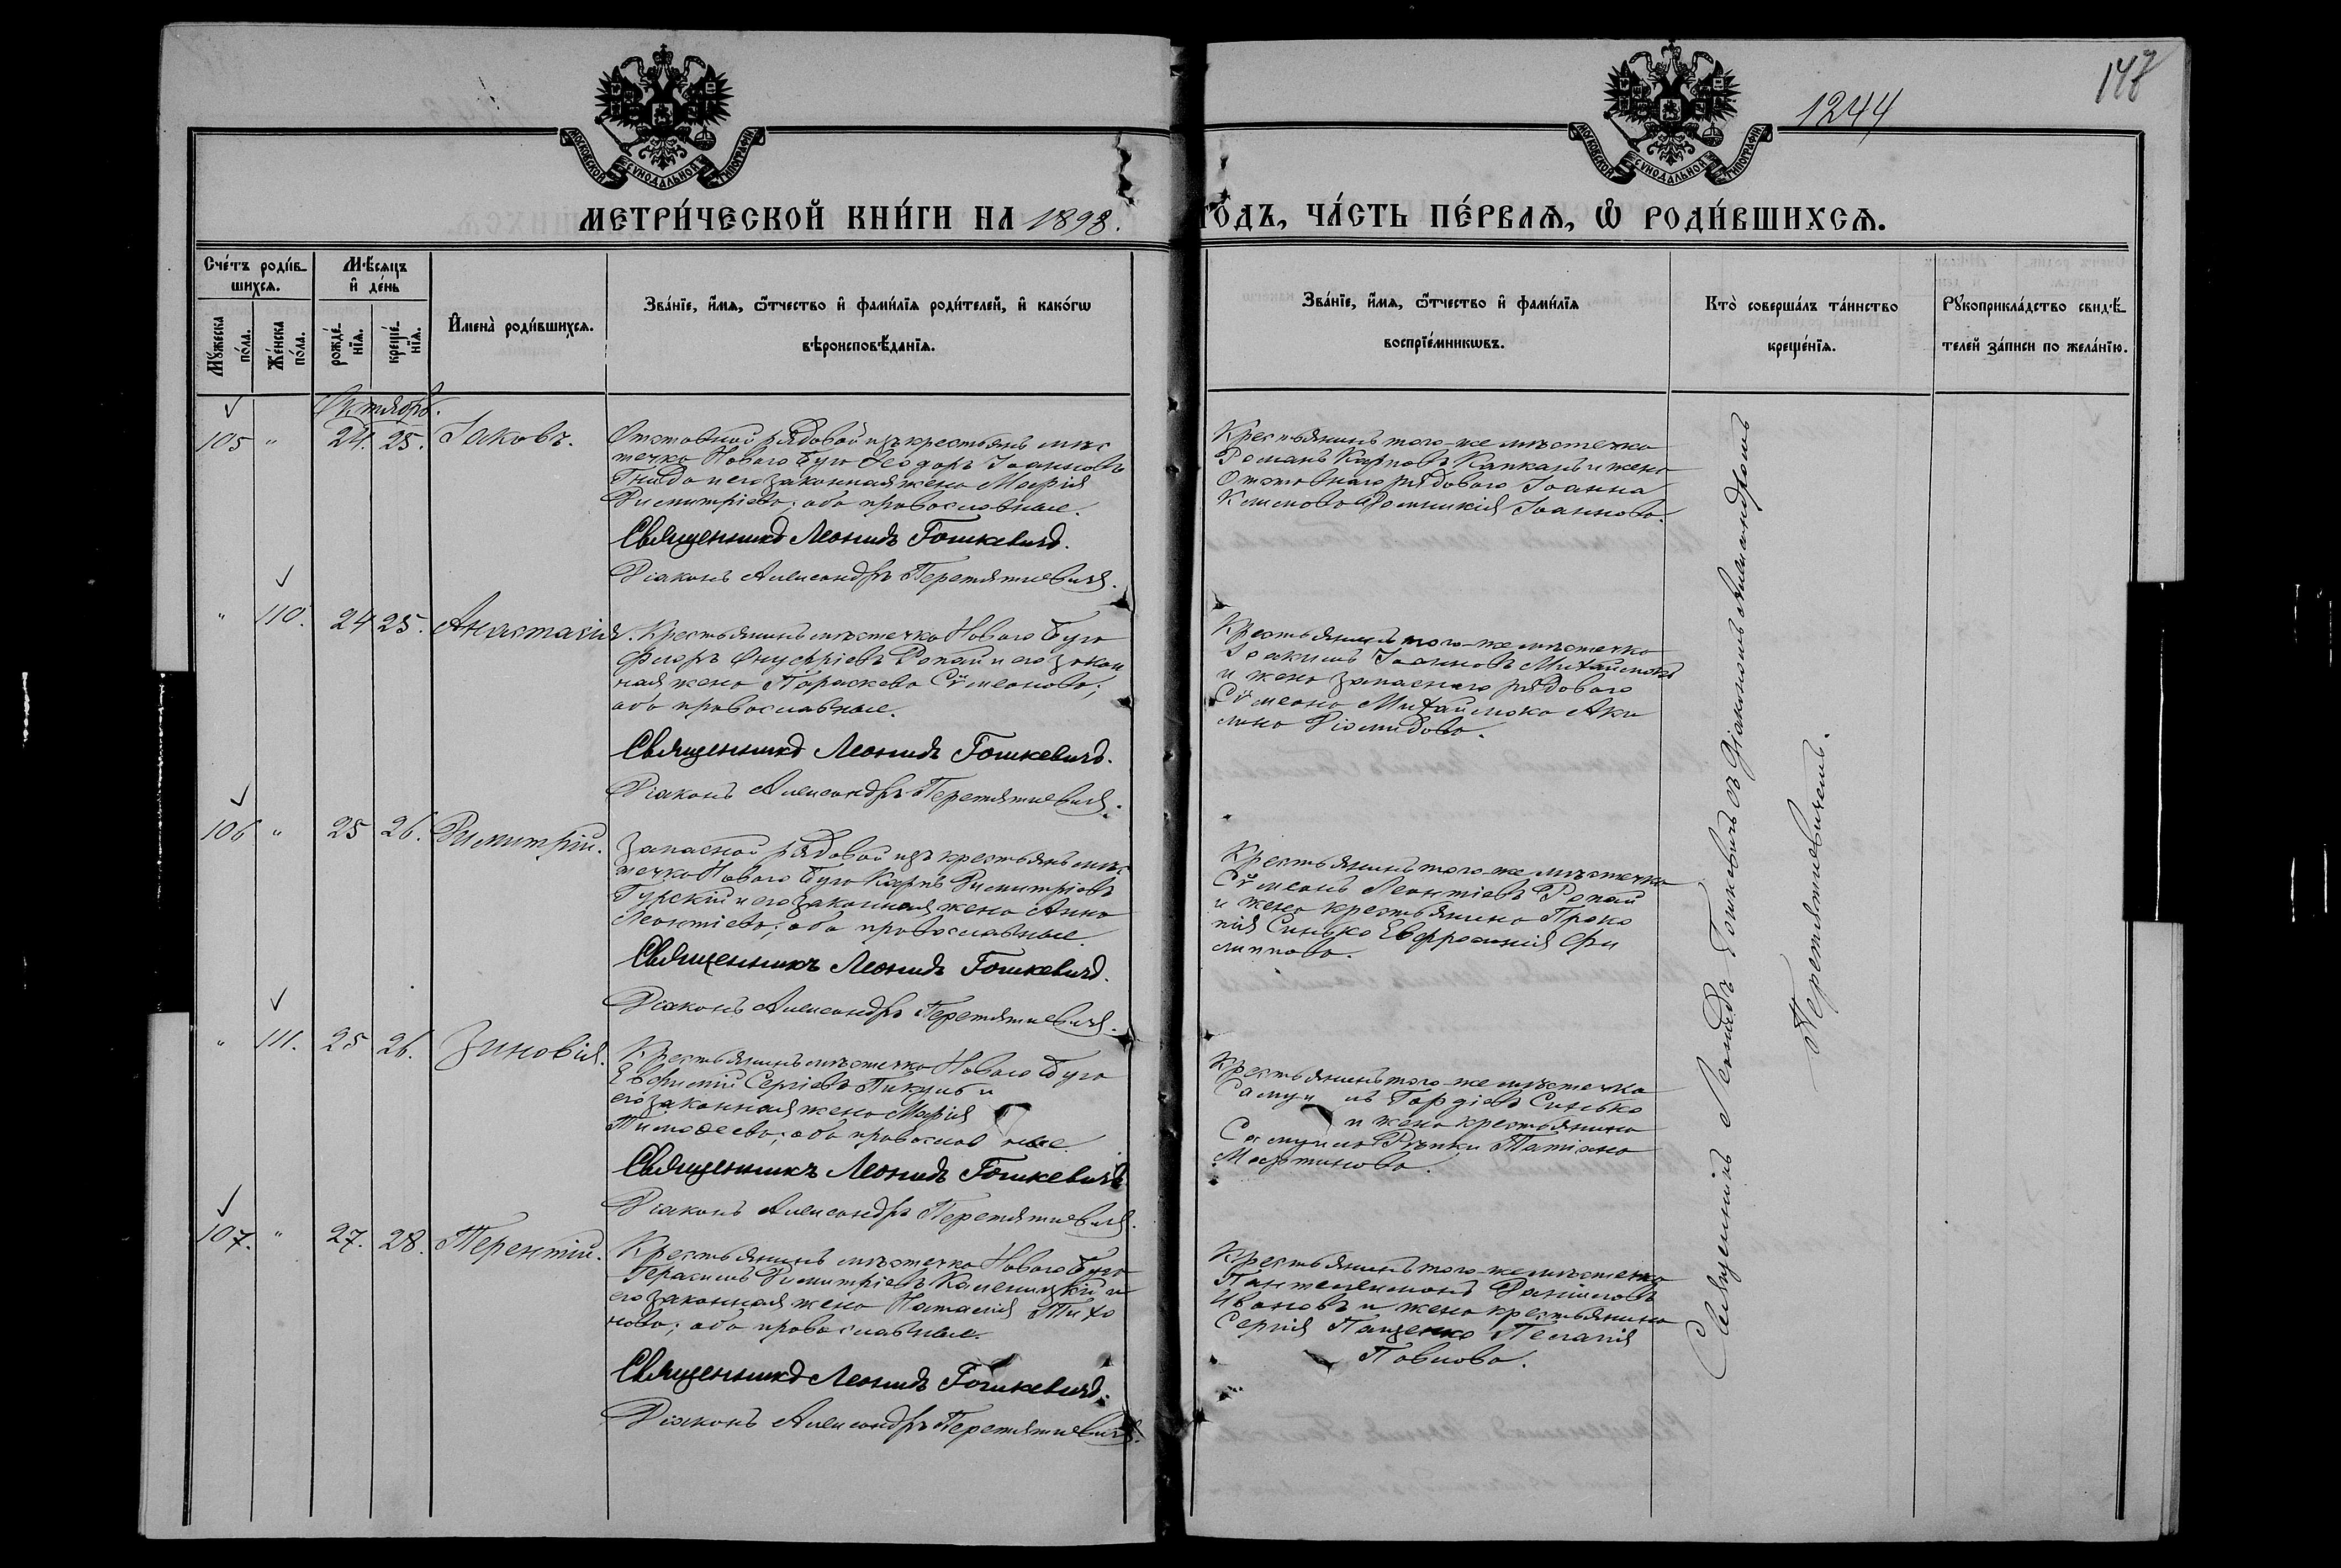 1244
148
МОСКОВСКОЙ СѴНОДАЛЬНОЙ ТИПОГРАФІИ
МОСКОВСКОЙ СѴНОДАЛЬНОЙ ТИПОГРАФІИ
МЕТРИ́ЧЕСКОЙ КНИ́ГИ НА 1898.
ГОДЪ, ЧА́СТЬ ПЕ́РВАѦ, Ѡ҆ РОДИ́ВШИХСѦ.
Сче́тъ роди́в-
шихсѧ.
Мѣ́сѧцъ
и҆ де́нь
Мꙋ́жеска
по́ла.
Же́нска
по́ла.
рожде́-
нїѧ.
креще́-
нїѧ.
И҆мена̀ роди́вшихсѧ.
Зва́нїе, и҆́мѧ, ѻ҆́тчество и҆ фами́лїѧ роди́телей, и҆ како́гѡ
вѣроисповѣ́данїѧ.
Зва́нїе, и҆́мѧ, ѻ҆́тчество и҆ фами́лїѧ
воспрїе́мникѡвъ.
Кто̀ соверша́лъ та́инство
креще́нїѧ.
Рꙋкоприкла́дство свидѣ́-
телей за́писи по жела́нїю.
Октябрь.
105 " 24. 25. Іаковъ.
Отставной рядовой изъ крестьянъ мѣс
течка Новаго Буга Ѳеодоръ Іоанновъ
Гнида и его законная жена Марія
Димитріева; оба православные.
Священникъ Леонидъ Гошкевичъ.
Діаконъ Александръ Перетятковичъ.
Крестьянинъ того-же мѣстечка
Романъ Карповъ Капканъ и жена
Отставнаго рядового Іоанна
Іоаннова.
" 110. 24 25. Анастасія.
Крестьянинъ мѣстечка Новаго Буга
Флоръ Онуфріевъ Ропай и его закон
ная жена Параскева Сѵмеонова;
оба православные.
Священникъ Леонидъ Гошкевичъ.
Діаконъ Александръ Перетятковичъ.
Крестьянинъ того-же мѣстечка
Іоакимъ Іоанновъ Михайленко
и жена запаснаго рядового
Сѵмеона Михайленко Аки
лина Діомидова.
106 " 25 26. Димитрій.
Запасной рядовой изъ крестьянъ мѣс
течка Новаго Буга Карпъ Димитріевъ
Гурскій и его законная жена Анна
Леонтіева; оба православные.
Священникъ Леонидъ Гошкевичъ.
Діаконъ Александръ Перетятковичъ.
Крестьянинъ того-же мѣстечка
Сѵмеонъ Леонтіевъ Ропай
и жена крестьянина Проко
пія Синько Евфросинія Фи
липпова.
" 111. 25 26. Зиновія.
Крестьянинъ мѣстечка Новаго Буга
Евфимій Сергіевъ Пикуль и
его законная жена Марія
Тимоѳеева; оба православные.
Священникъ Леонидъ Гошкевичъ
Діаконъ Александръ Перетятковичъ.
Крестьянинъ того-же мѣстечка
Самуилъ Гордіевъ Синько
и жена крестьянина
Самуила Рѣпки Татіана
Мартинова.
107. " 27. 28. Терентій.
Крестьянинъ мѣстечка Новаго Буга
Герасимъ Димитріевъ Каменицкій и
его законная жена Наталія Тихо
нова; оба православные.
Священникъ Леонидъ Гошкевичъ.
Діаконъ Александръ Перетятковичъ.
Крестьянинъ того-же мѣстечка
Пантелеимонъ Даніиловъ
Ивановъ и жена крестьянина
Сергія Пащенко Пелагія
Павлова.
Священникъ Леонидъ Гошкевичъ съ Діакономъ Александромъ
Перетятковичемъ.